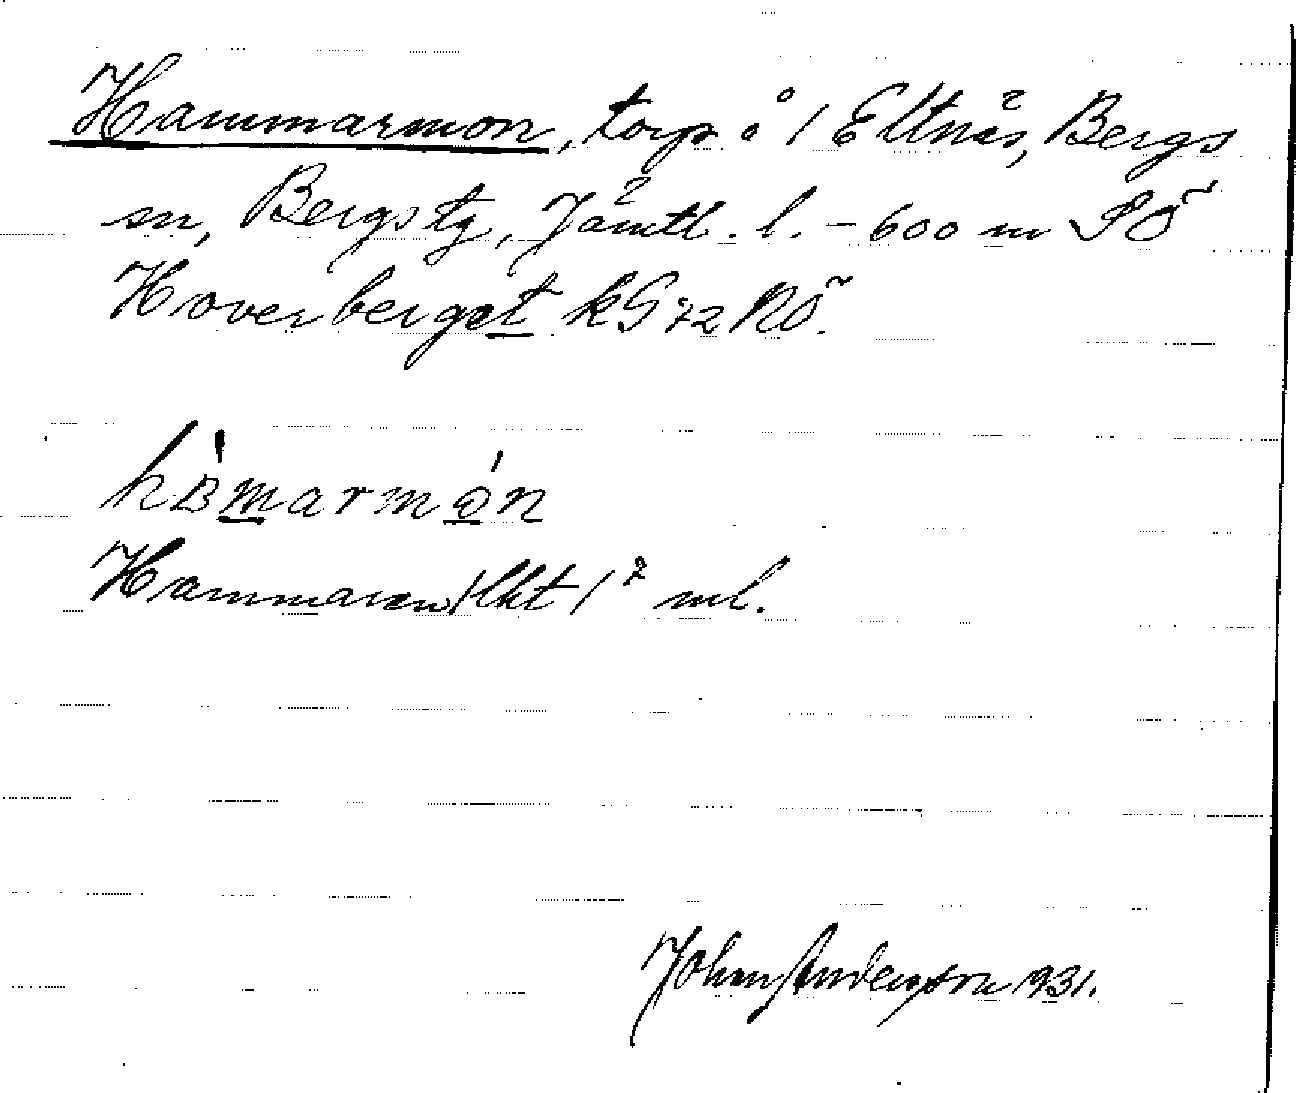 Hammarmon, torp å / Eltnäs, Bergs
sn, Bergs tg, Jämtl. l. – 600 m SÖ
Hoverberget kG 72 NÖ.
hàmarmón
Hammaren / lkt /² ml.
John Anderson 1931.